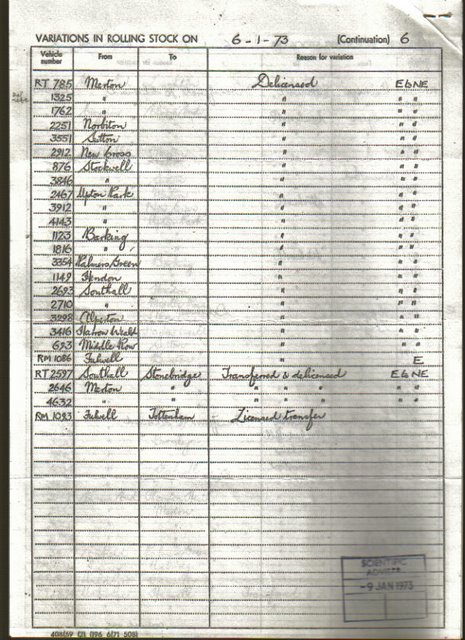 VARIATIONS IN ROLLING STOCK ON 6-1-73 (Continuation) 6
Vehicle number From To Reason for variation
RT 785 Merton Delicensed E6NE
1325 " " " "
1762 " " " "
2251 Norbiton " " "
3551 Sutton " " "
2912 New Cross " " "
876 Stockwell " " "
3846 " " " "
2467 Upton Park " " "
3912 " " " "
4143 " " " "
1123 Barking " " "
1816 " " " "
3354 Palmers Green " " "
1149 Hendon " " "
2693 Southall " " "
2710 " " " "
3298 Alperton " " "
3416 Harrow Weald " " "
623 Middle Row " " "
RM 1086 Fulwell " E
RT 2597 Southall Stonebridge Transferred & delicensed E6NE
2646 Merton " " " " " "
4632 " " " " " " "
RM 1083 Fulwell Tottenham Licensed transfer
SCIENTIFIC
-9 JAN 1973